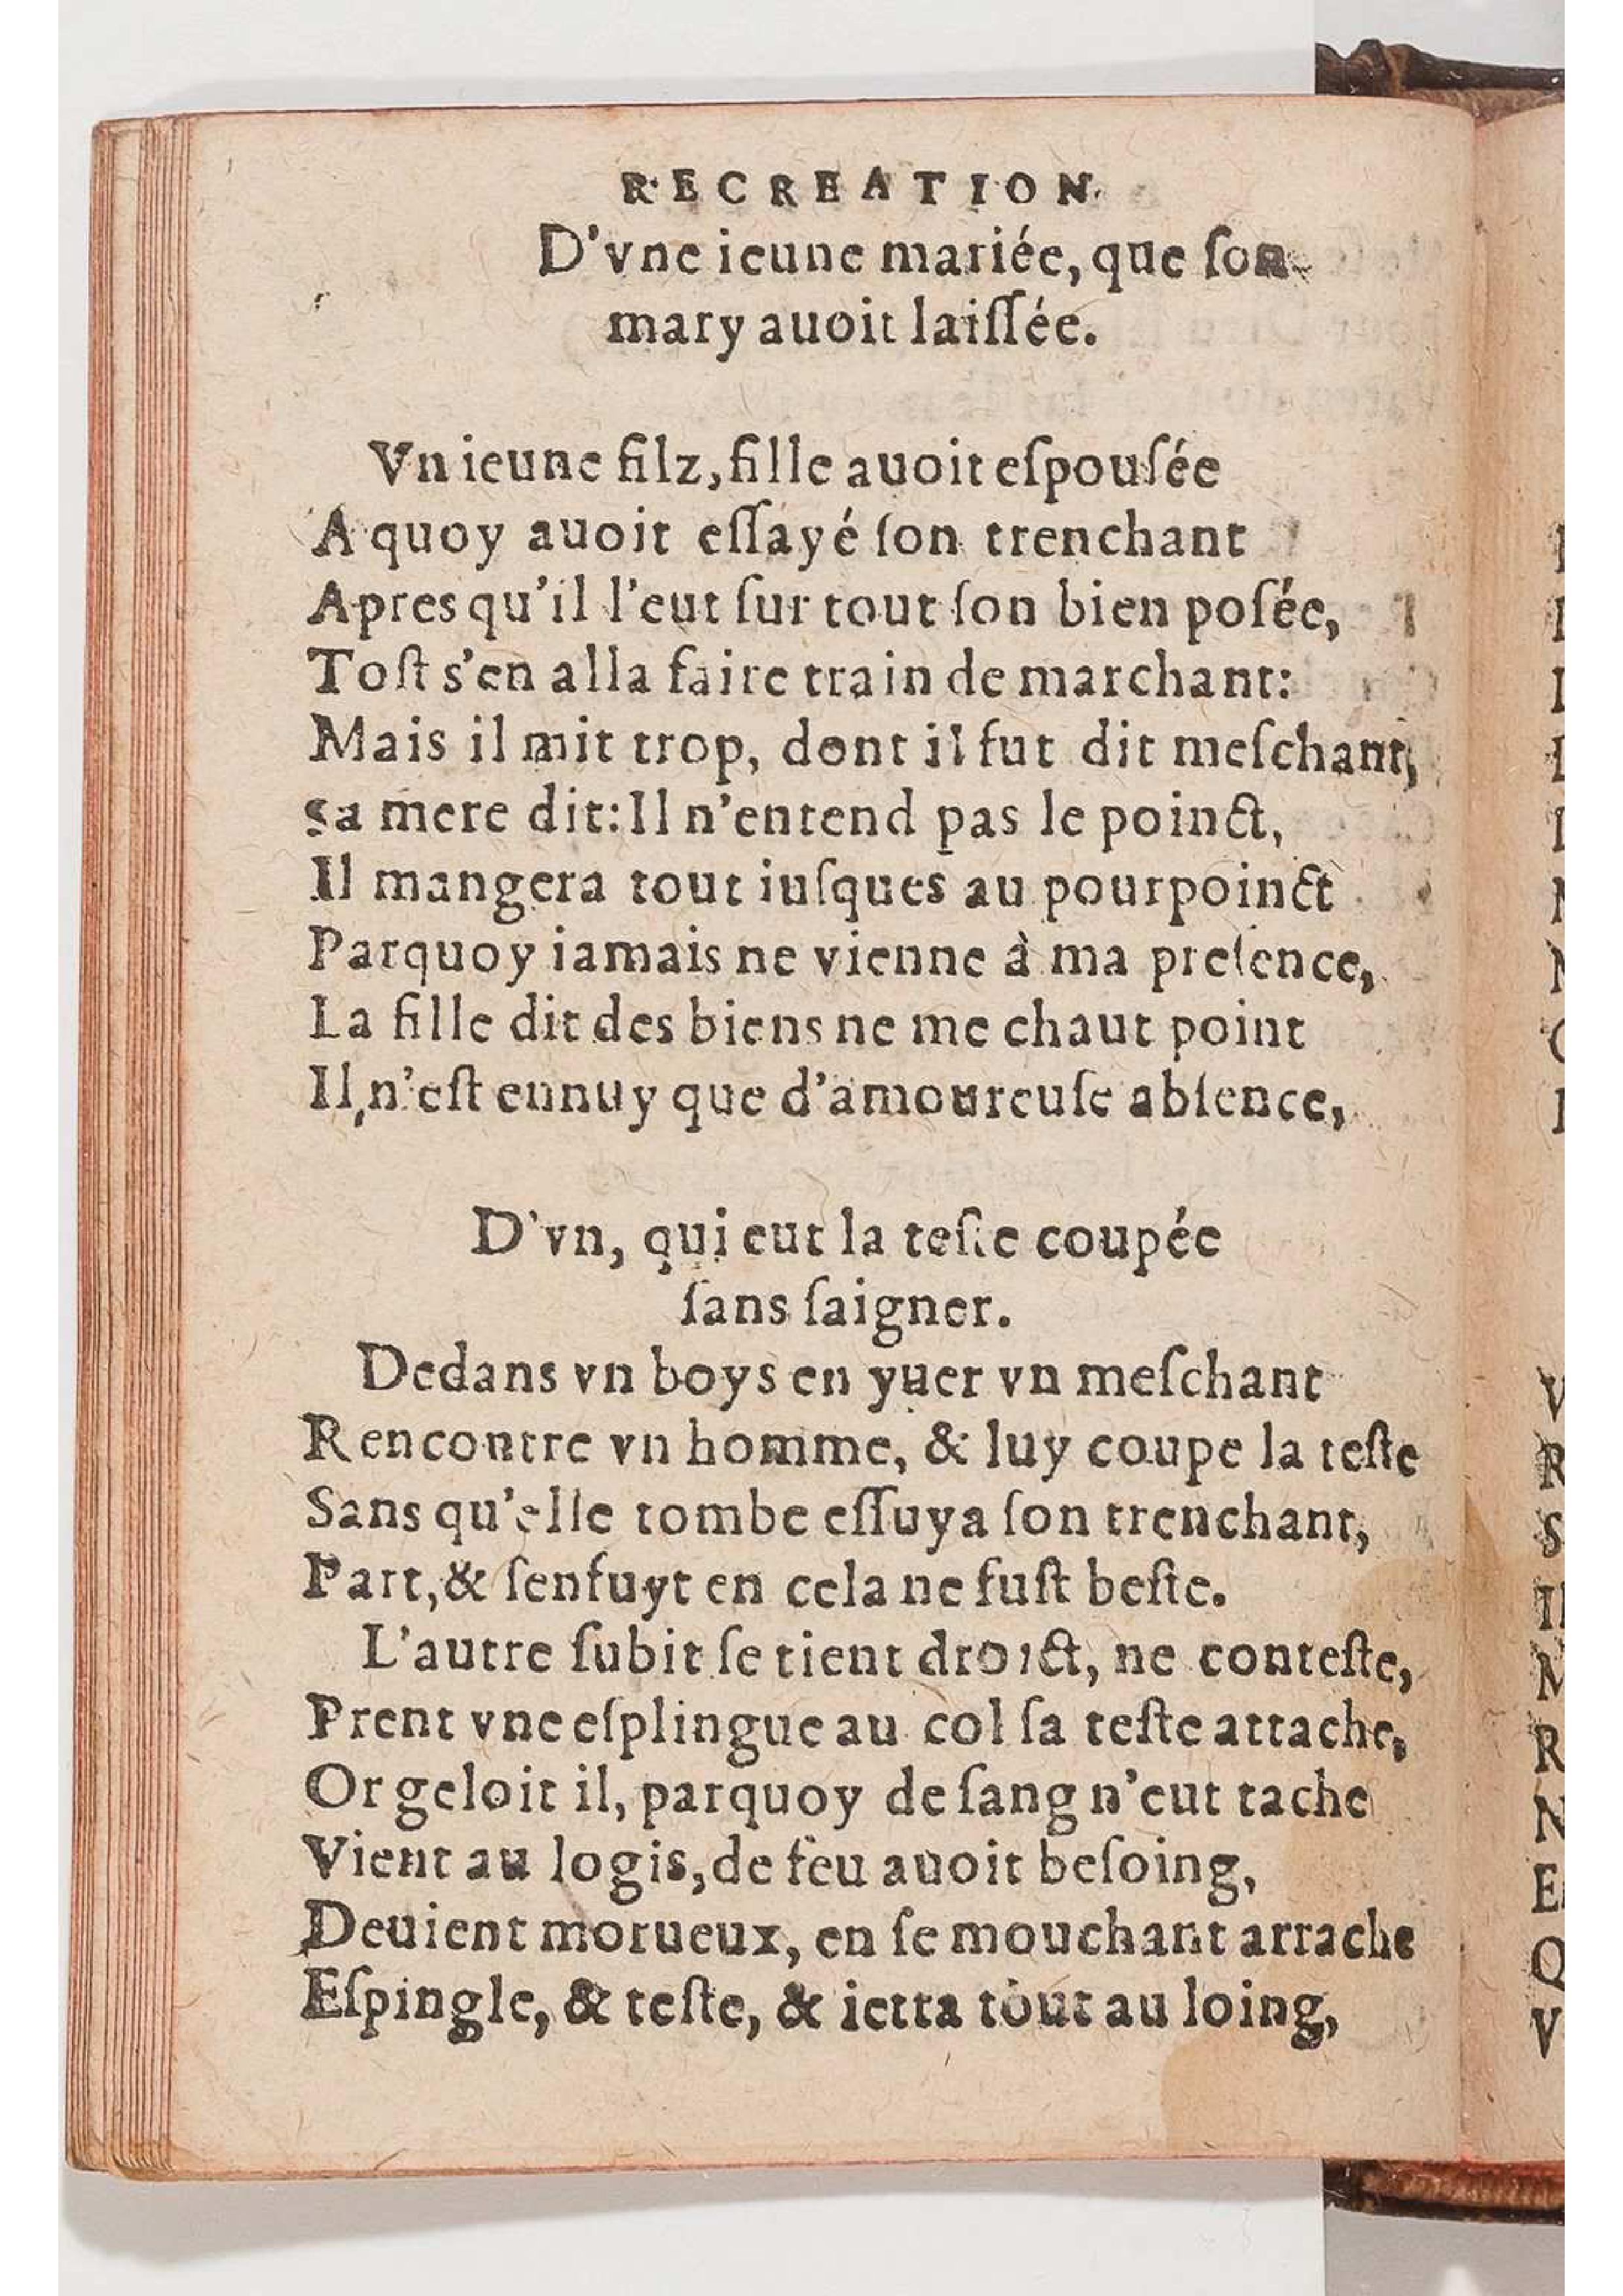 RECREATION.
D'vne ieune mariée, que ſon
mary auoit laiſſée.
Vn ieune filz, fille auoit eſpouſée
A quoy auoit eſſayé ſon trenchant
Apres qu'il l'eut ſur tout ſon bien poſée,
Toſt s'en alla faire train de marchant:
Mais il mit trop, dont il fut dit meſchant,
sa mere dit: Il n'entend pas le poinct,
Il mangera tout iuſques au pourpoinct
Parquoy iamais ne vienne à ma preſence,
La fille dit des biens ne me chaut point
Il n'eſt ennuy que d'amoureuſe abſence,
D'vn, qui eut la teſte coupée
ſans ſaigner.
Dedans vn boys en yuer vn meſchant
Rencontre vn homme, & luy coupe la teſte
Sans qu'elle tombe eſſuya ſon trenchant,
Part, & ſenfuyt en cela ne fuſt beſte.
L'autre ſubit ſe tient droict, ne conteſte,
Prent vne eſplingue au col ſa teſte attache,
Or geloit il, parquoy de ſang n'eut tache
Vient au logis, de feu auoit beſoing,
Deuient morueux, en ſe mouchant arrache
Eſpingle, & teſte, & ietta tout au loing,